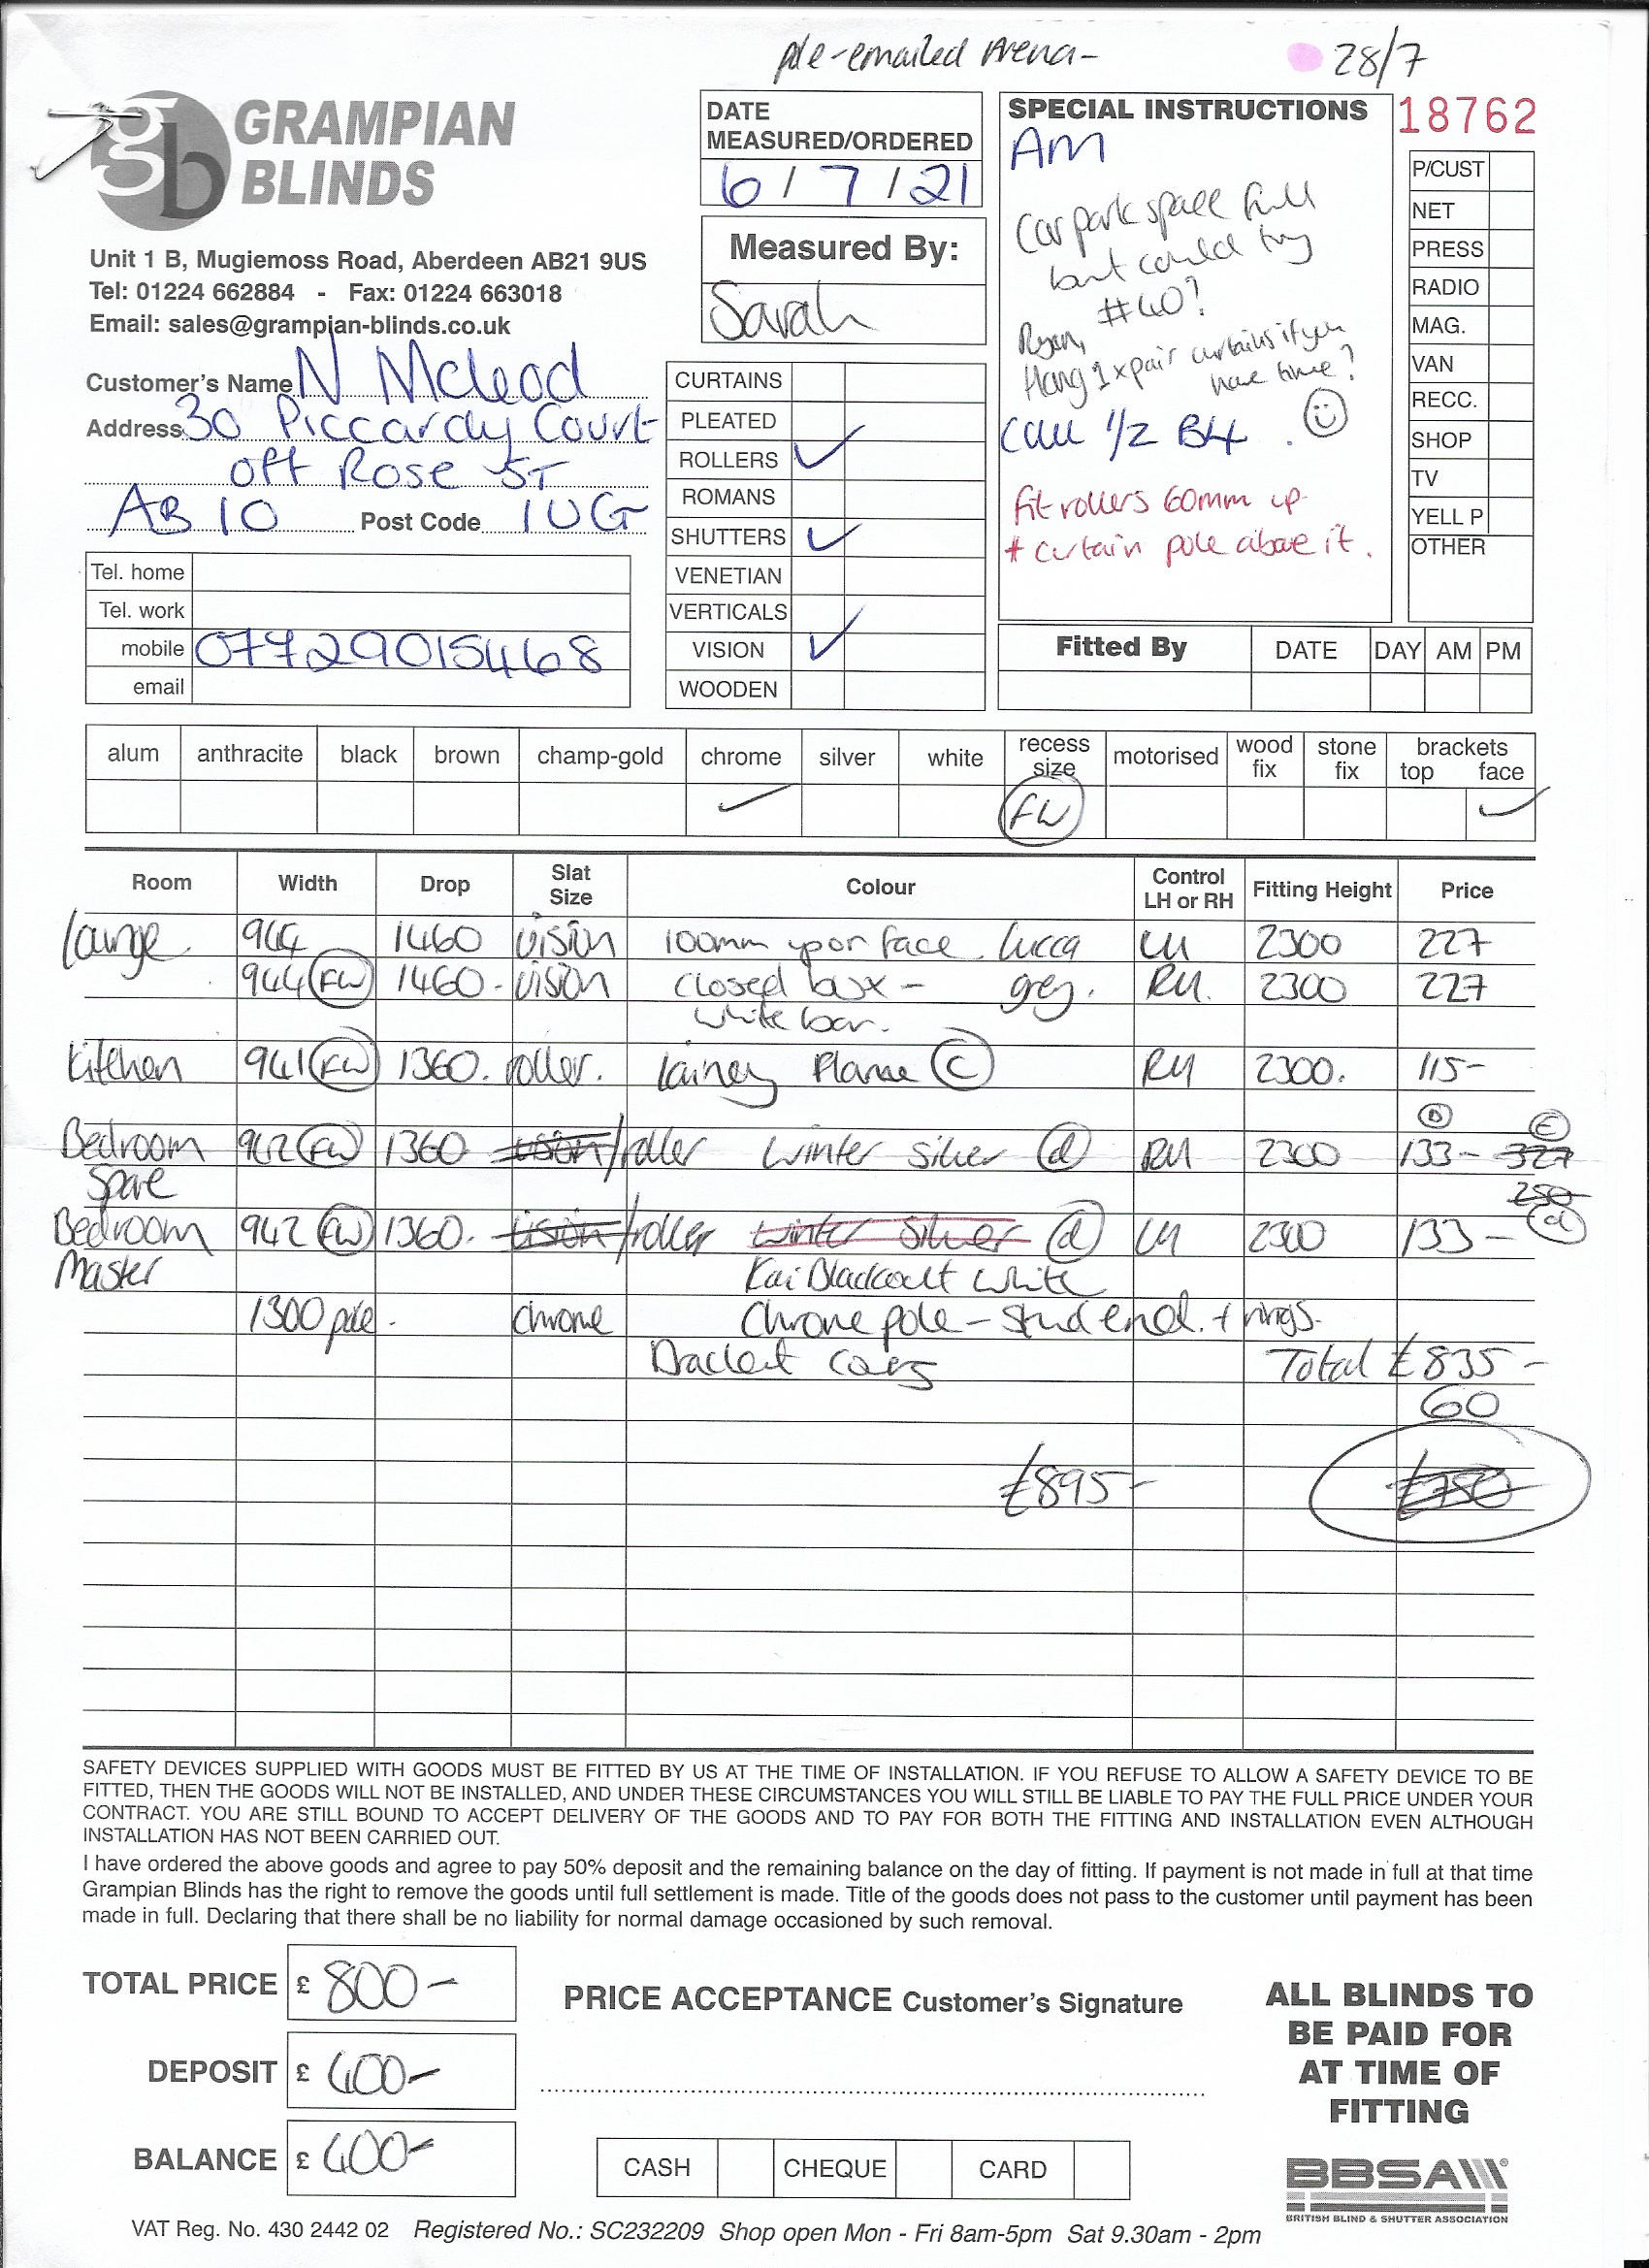 pole-emailed Arena-
28/7
gb GRAMPIAN
BLINDS
Unit 1 B, Mugiemoss Road, Aberdeen AB21 9US
Tel: 01224 662884 - Fax: 01224 663018
Email: sales@grampian-blinds.co.uk
Customer's Name N Mcleod
Address 30 Piccardy Court
off Rose ST
AB 10 Post Code 1UG
Tel. home
Tel. work
mobile 07729015468
email
DATE
MEASURED/ORDERED
6 / 7 / 21
Measured By:
Sarah
CURTAINS
PLEATED
ROLLERS ✓
ROMANS
SHUTTERS ✓
VENETIAN
VERTICALS
VISION ✓
WOODEN
SPECIAL INSTRUCTIONS
AM
Car park space full
but could try
#40?
Ryan,
Hang 1 x pair curtains if you
have time?
Call 1/2 B4.
fit rollers 60mm up
+ curtain pole above it.
18762
P/CUST
NET
PRESS
RADIO
MAG.
VAN
RECC.
SHOP
TV
YELL P
OTHER
Fitted By DATE DAY AM PM
alum anthracite black brown champ-gold chrome silver white recess size motorised wood fix stone fix brackets top face
✓ FW ✓
Room Width Drop Slat Size Colour Control LH or RH Fitting Height Price
Lounge 944 1460 vision 100mm upor face Lucca LH 2300 227
944 FW 1460- vision closed box - grey. RH. 2300 227
white bar.
Kitchen 941 FW 1360. roller. Lainey Plame C RH 2300. 115-
D E
Bedroom 942 FW 1360 vision/roller winter silver d RH 2300 133- 327
Spare 250
Bedroom 942 FW 1360. vision/roller winter silver d LH 2300 133- d
Master Kai Blackout White
1300 pole. chrome Chrome pole - stud end. + rings.
Bracket Total £835-
60
£895- £750
SAFETY DEVICES SUPPLIED WITH GOODS MUST BE FITTED BY US AT THE TIME OF INSTALLATION. IF YOU REFUSE TO ALLOW A SAFETY DEVICE TO BE
FITTED, THEN THE GOODS WILL NOT BE INSTALLED, AND UNDER THESE CIRCUMSTANCES YOU WILL STILL BE LIABLE TO PAY THE FULL PRICE UNDER YOUR
CONTRACT. YOU ARE STILL BOUND TO ACCEPT DELIVERY OF THE GOODS AND TO PAY FOR BOTH THE FITTING AND INSTALLATION EVEN ALTHOUGH
INSTALLATION HAS NOT BEEN CARRIED OUT.
I have ordered the above goods and agree to pay 50% deposit and the remaining balance on the day of fitting. If payment is not made in full at that time
Grampian Blinds has the right to remove the goods until full settlement is made. Title of the goods does not pass to the customer until payment has been
made in full. Declaring that there shall be no liability for normal damage occasioned by such removal.
TOTAL PRICE £ 800-
DEPOSIT £ 400-
BALANCE £ 400-
PRICE ACCEPTANCE Customer's Signature
CASH CHEQUE CARD
ALL BLINDS TO
BE PAID FOR
AT TIME OF
FITTING
BBSA
BRITISH BLIND & SHUTTER ASSOCIATION
VAT Reg. No. 430 2442 02 Registered No.: SC232209 Shop open Mon - Fri 8am-5pm Sat 9.30am - 2pm